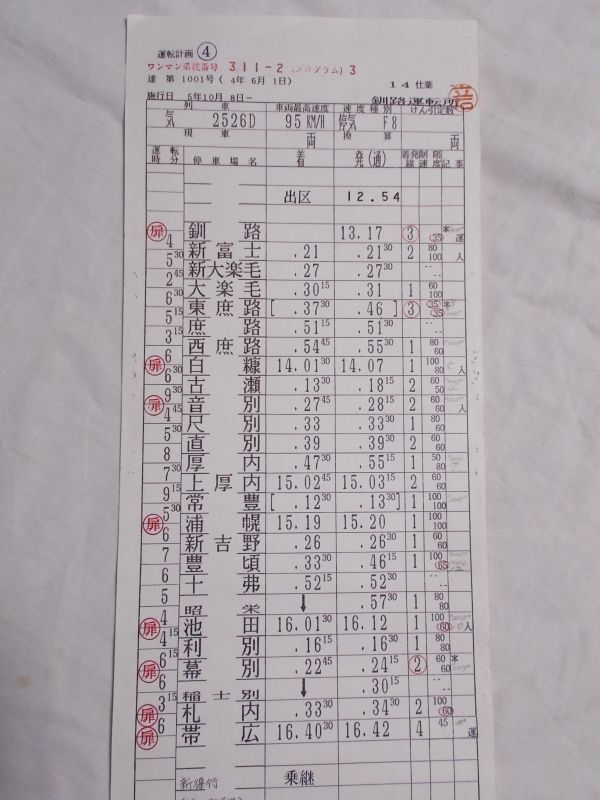 運転計画 ④
ワンマン系統番号 311-2 (プログラム) 3
達 第 1001号 ( 4年 6月 1日)
14 仕業
施行日 5年10月 8日- 釧路運転所
列車 車両最高速度 速度種別 けん引定数
気 2526D 95 KM/H 停気 F8
現車 両 換算 両
運転時分 停車場名 着 発(通) 着発線 制限速度 記事
出区 12.54
扉 釧路 13.17 3 35 * 運
4
新富士 .21 .21 30 2 80 100 入
5 30
新大楽毛 .27 .27 30 -- --
2 45
大楽毛 .30 15 .31 1 60 100
6 30
東庶路 [ .37 30 .46 ] 3 35 35 *
5 15
庶路 .51 15 .51 30
3 15
西庶路 .54 45 .55 30 1 80 60
6
扉 白糠 14.01 30 14.07 1 100 80 入
6 30
古瀬 .13 30 .18 15 2 60 50
9 30
扉 音別 .27 45 .28 15 2 60 60 入
4 45
尺別 .33 .33 30 1 80 60
5 30
直別 .39 .39 30 2 60 60
8
厚内 .47 30 .55 15 1 50 80
7 30
上厚内 15.02 45 15.03 15 2 60 60
9 15
常豊 [ .12 30 .13 30 ] 1 100 100
5 30
扉 浦幌 15.19 15.20 1 100 100
6
新吉野 .26 .26 30 1 60 60
7
豊頃 .33 30 .46 15 1 100 65
6
十弗 .52 15 .52 30 -- --
5
昭栄 ↓ .57 30 1 80 80
4
扉 池田 16.01 30 16.12 1 100 60 入
4 15
利別 .16 15 .16 30 1 80 80
6 15
扉 幕別 .22 45 .24 15 2 60 60 *
6
稲士別 ↓ .30 15 -- --
3 15
扉 札内 .33 30 .34 30 2 100 60
6
扉 帯広 16.40 30 16.42 4 45 運
乗継